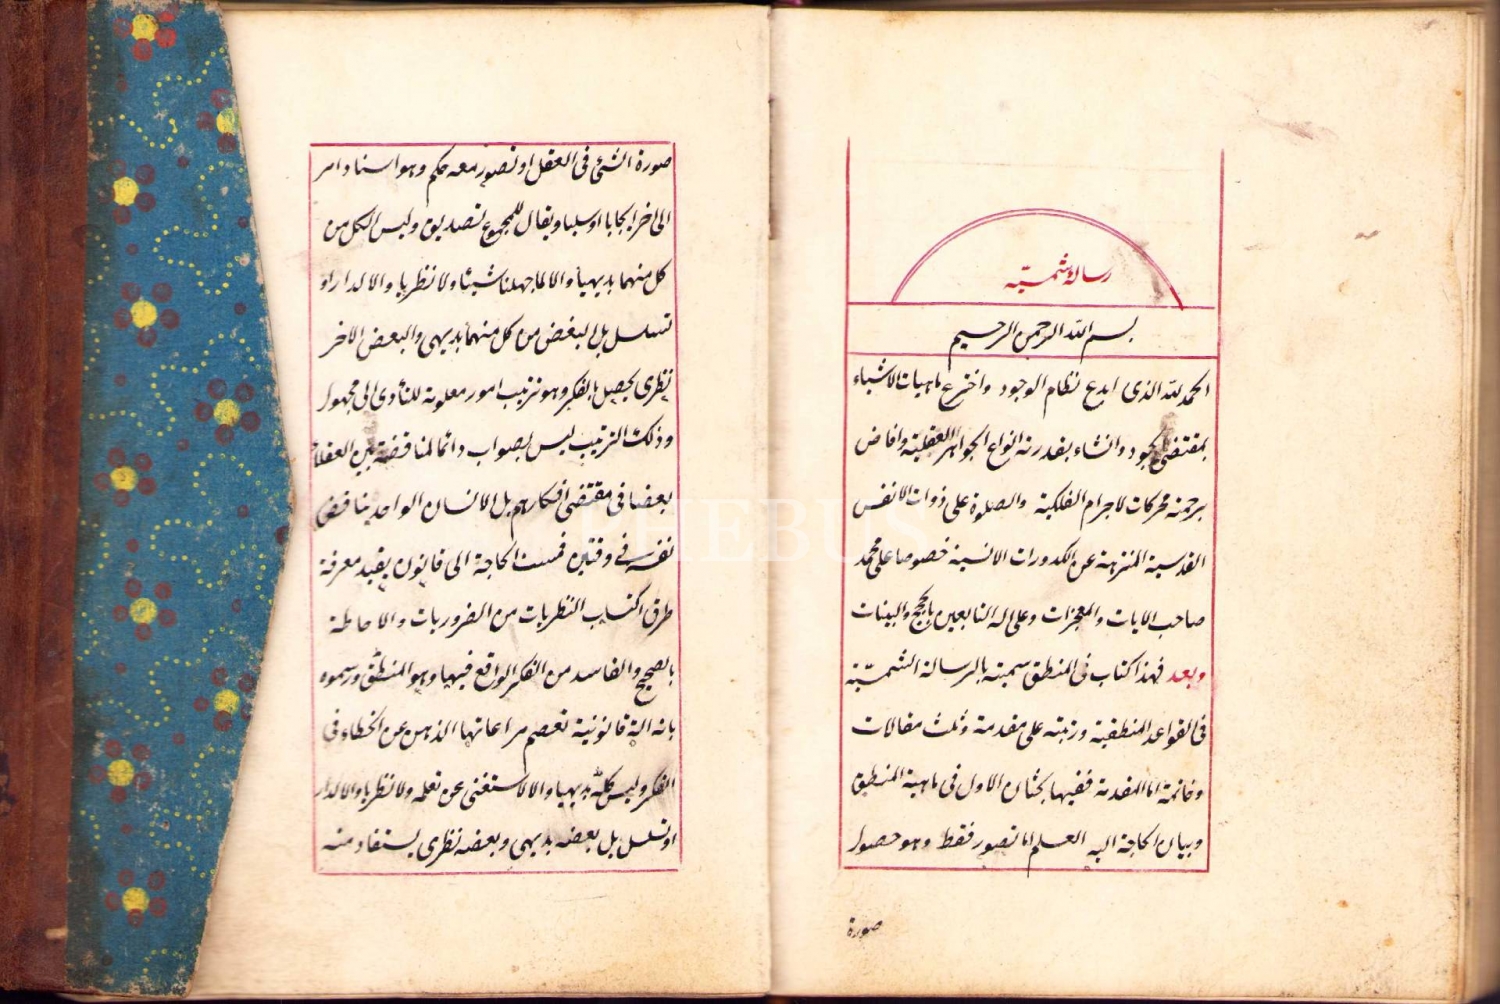 رسالۀ شمسیّه
بسم الله الرحمن الرحیم
الحمد لله الذی ابدع نظام الوجود واخترع ماهیات الاشیاء
بمقتضی الجود وانشاء بقدرته انواع الجواهر العقلیة وافاض
برحمته محرکات الاجرام الفلکیة والصلوة علی ذوات الانفس
القدسیة المنزهة عن الکدورات الانسیة خصوصا علی محمد
صاحب الایات والمعجزات وعلی اله التابعین بالحجج والبینات
وبعد فهذا کتاب فی المنطق سمیته بالرسالة الشمسیّة
فی القواعد المنطقیة ورتبته علی مقدمة وثلث مقالات
وخاتمة اما المقدمة ففیها بحثان الاول فی ماهیة المنطق
وبیان الحاجة الیه العلم اما تصور فقط وهو حصول
صورة
صورة الشئ فی العقل او تصور معه حکم وهو اسناد امر
الی اخر ایجابا او سلبا ویقال للمجموع تصدیق ولیس الکل من
کل منهما بدیهیا والا لما جهلنا شیئا ولا نظریا والا لدار او
تسلسل بل البعض من کل منهما بدیهی والبعض الاخر
نظری یحصل بالفکر وهو ترتیب امور معلومة للتأدی الی مجهول
وذلک الترتیب لیس بصواب دائما لمناقضة بین العقلاء
بعضا فی مقتضی افکارهم بل الانسان الواحد یناقض
نفسه فی وقتین فمست الحاجة الی قانون یفید معرفة
طرق اکتساب النظریات من الضروریات والاحاطة
بالصحیح والفاسد من الفکر الواقع فیها وهو المنطق ورسموه
بانه الة قانونیة تعصم مراعاتها الذهن عن الخطاء فی
الفکر ولیس کلّه بدیهیا والا لاستغنی عن تعلمه ولا نظریا والا لدار
او تسلسل بل بعضه بدیهی وبعضه نظری یستفاد منه
PHEBUS